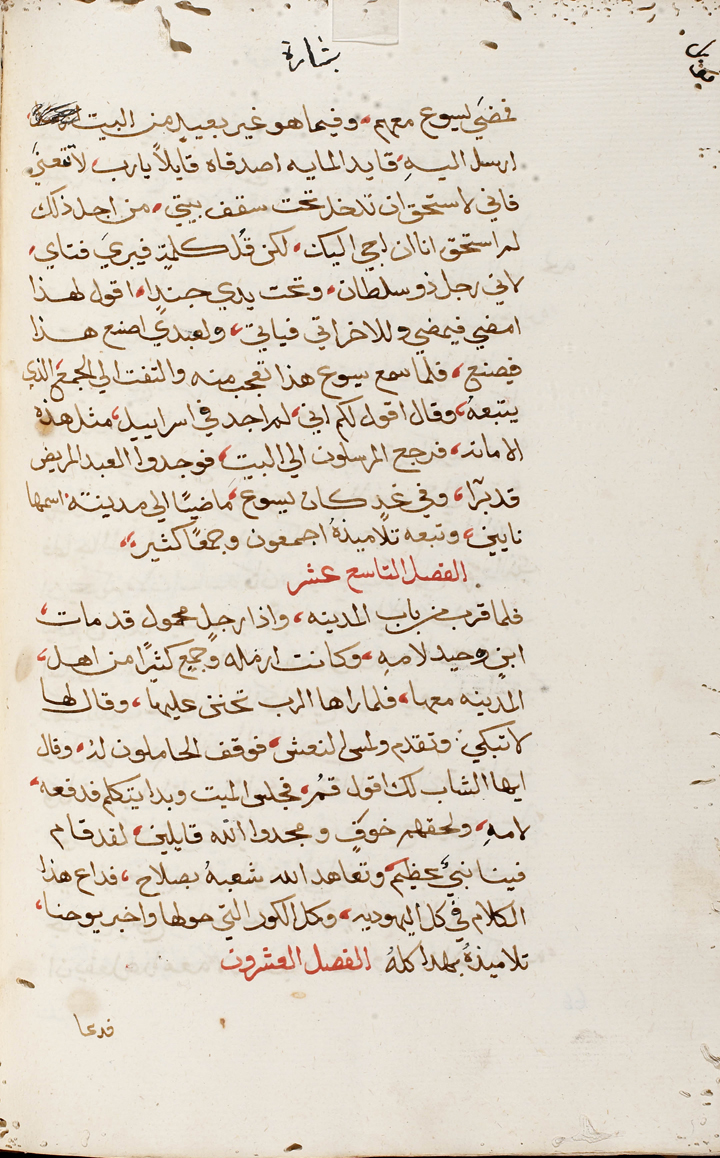 بشارة
فمضى يسوع معهم، وفيما هو غير بعيدٍ من البيت
ارسل اليه، قايد المايه اصدقاه قايلاً يارب، لا تتعنى
فاني لا استحق ان تدخل تحت سقف بيتي، من اجل ذلك
لم استحق انا ان اجي اليك، لكن قُل كلمةٍ فيبرى فتاي،
لاني رجل ذو سلطان، وتحت يدي جندا، اقول لهذا
امضي فيمضي وللاخر اتي فياتي، ولعبدي اصنع هذا
فيصنع، فلما سمع يسوع هذا تعجب منه والتفت الى الجمع الذي
يتبعهُ، وقال اقول لكم اني، لم اجد في اسراييل، مثل هذه
الامانه، فرجع المرسلون الى البيت، فوجدوا العبد المريض
قد برآ، وفي غدٍ كان يسوع، ماضيًا الى مدينته اسمها
نايين، وتبعه تلاميذهُ اجمعون وجمعًا كثير،
الفصل التاسع عشر
فلما قرب من باب المدينه، واذا رجلٍ محمول قد مات،
ابنٍ وحيد لامهِ، وكانت ارمله وجمع كثيرًا من اهل،
المدينه معها، فلما راها الرب تحنن عليها، وقال لها
لا تبكي، وتقدم ولمس النعش، فوقف الحاملون لهُ، وقال
ايها الشاب لك اقول قمُ، فجلس الميت وبدا يتكلم فدفعه،
لامهِ، ولحقهم خوفٍ ومجدوا الله قايلين، لقد قام
فينا نبيٌ عظيم، وتعاهد الله شعبهُ بصلاح، فداع هذا
الكلام في كل اليهوديه، وكل الكور التي حولها واخبر يوحنا،
تلاميذهُ بهدا كلهُ الفصل العشرون
فدعا